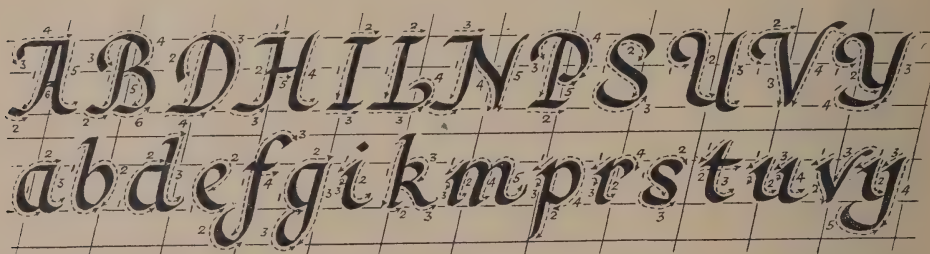 A B D H I L N P S U V Y
a b d e f g i k m p r s t u v y